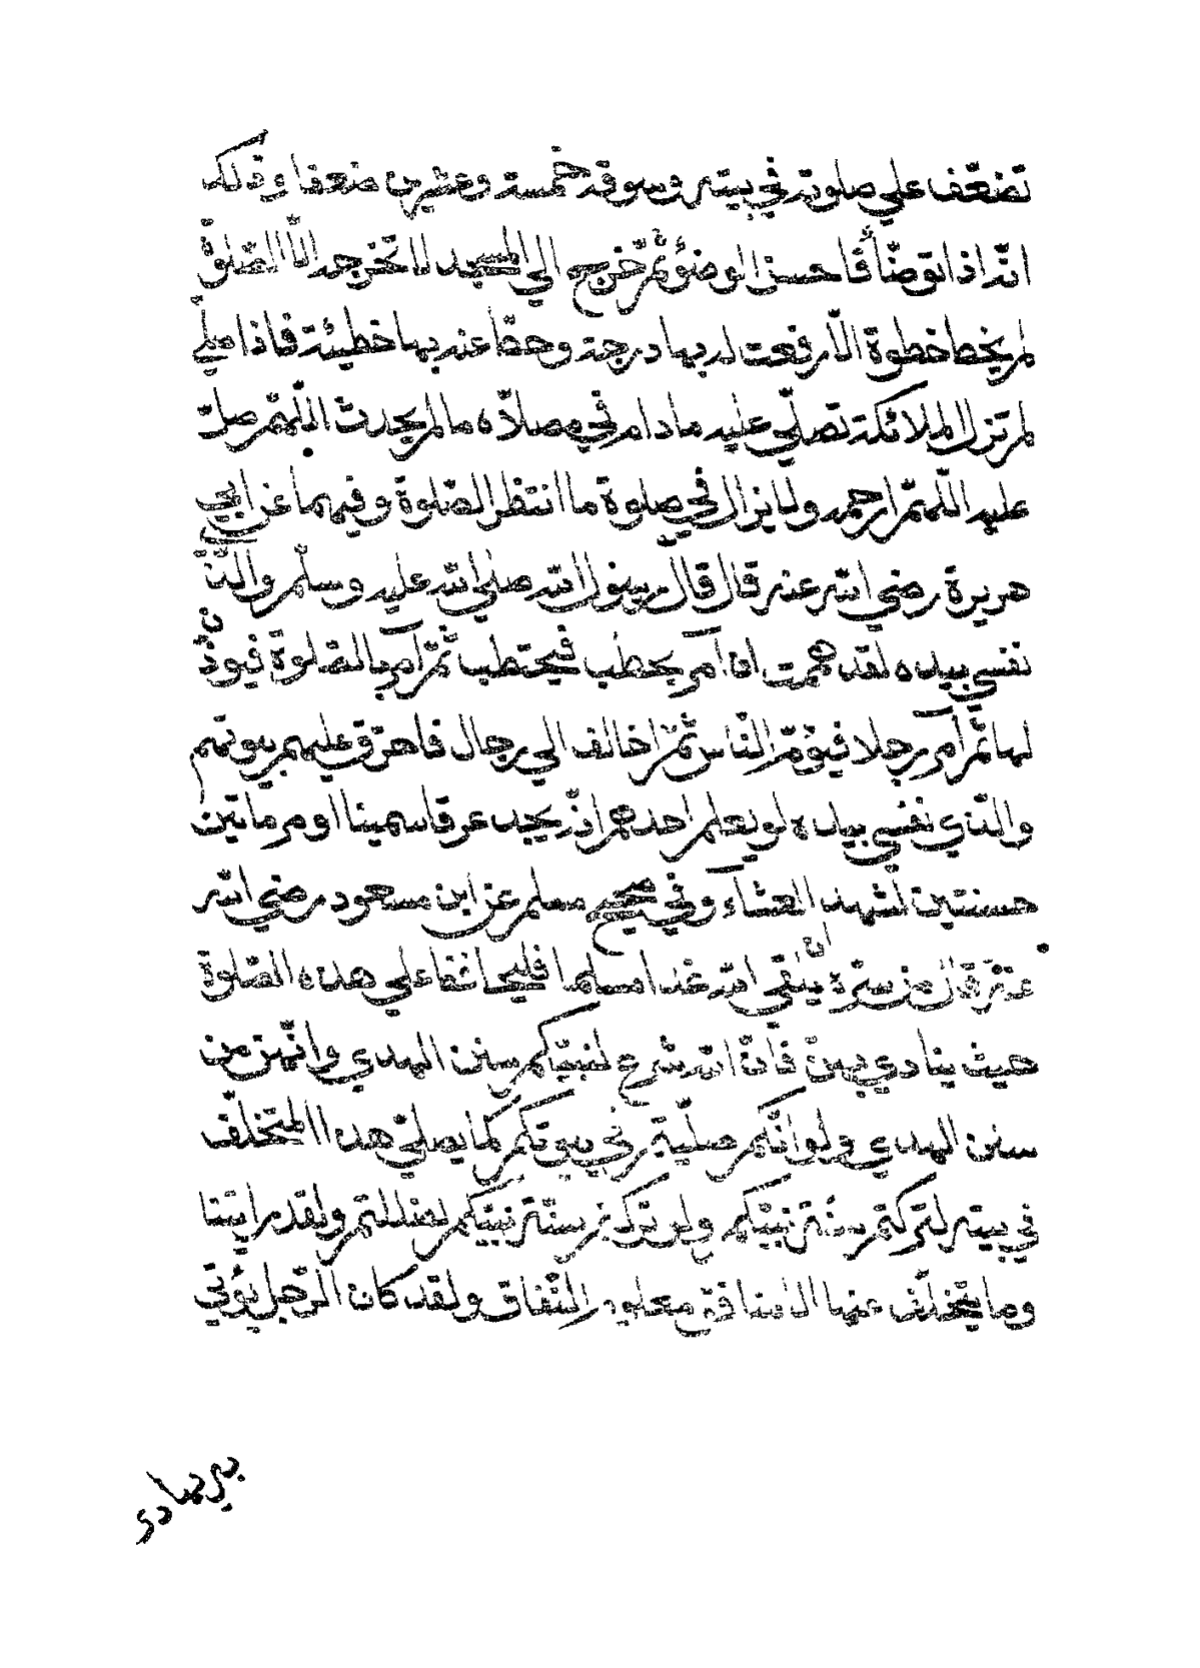 تضعّف علي صلوته في بيته وسوقه خمسة وعشرين ضعفا وذلك
انّه اذا توضّأ فاحسن الوضوء ثمّ خرج الي المسجد لا تخرجه الّا الصّلوة
لم يخط خطوة الّا رفعت له بها درجة وحطّ عنه بها خطيئة فاذا صلّي
لم تزل الملائكة تصلّي عليه ما دام في مصلّاه ما لم يحدث اللّهمّ صلّ
عليه اللّهمّ ارحمه ولا يزال في صلوة ما انتظر الصّلوة وفيهما عن ابي
هريرة رضي الله عنه قال قال رسول الله صلي الله عليه وسلّم والّذي
نفسي بيده لقد هممت ان آمر بحطب فيحتطب ثمّ آمر بالصّلوة فيوذّن
لها ثمّ آمر رجلا فيؤمّ النّاس ثمّ اخالف الي رجال فاحرّق عليهم بيوتهم
والّذي نفسي بيده لو يعلم احدهم انّه يجد عرقا سمينا او مرماتين
حسنتين لشهد العشآء وفي صحيح مسلم عن ابن مسعود رضي الله
عنه قال من سرّه ان يلقي الله غدا مسلما فليحافظ علي هذه الصّلوة
حيث ينادي بهنّ فانّ الله شرع لنبيّكم سنن الهدي وانّهنّ من
سنن الهدي ولو انّكم صلّيتم في بيوتكم كما يصلّي هذا المتخلّف
في بيته لتركتم سنّة نبيّكم ولو تركتم سنّة نبيّكم لضللتم ولقد رايتنا
وما يتخلّف عنها الا منافق معلوم النّفاق ولقد كان الرّجل يؤتي